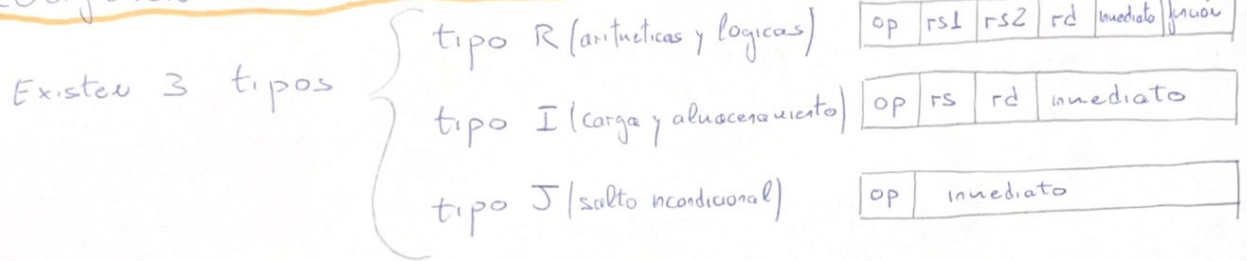 tipo R (aritmeticas y logicas) op rs1 rs2 rd inmediato función
Existen 3 tipos
tipo I (carga y almacenamiento) op rs rd inmediato
tipo J (salto incondicional) op inmediato